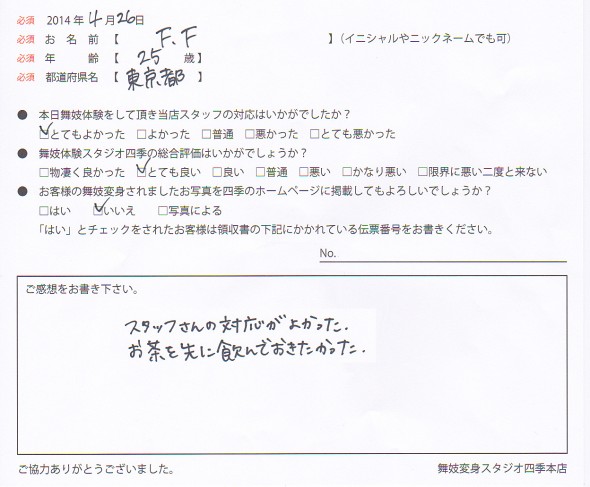 必須 2014 年 4 月 26 日
必須 お 名 前 【 F. F 】(イニシャルやニックネームでも可)
必須 年 齢 【 25 歳】
必須 都道府県名 【 東京都 】
● 本日舞妓体験をして頂き当店スタッフの対応はいかがでしたか？
☑とてもよかった □よかった □普通 □悪かった □とても悪かった
● 舞妓体験スタジオ四季の総合評価はいかがでしょうか？
□物凄く良かった ☑とても良い □良い □普通 □悪い □かなり悪い □限界に悪い二度と来ない
● お客様の舞妓変身されましたお写真を四季のホームページに掲載してもよろしいでしょうか？
□はい ☑いいえ □写真による
「はい」とチェックをされたお客様は領収書の下記にかかれている伝票番号をお書きください。
No.
ご感想をお書き下さい。
スタッフさんの対応がよかった.
お茶を先に飲んでおきたかった.
ご協力ありがとうございました。 舞妓変身スタジオ四季本店